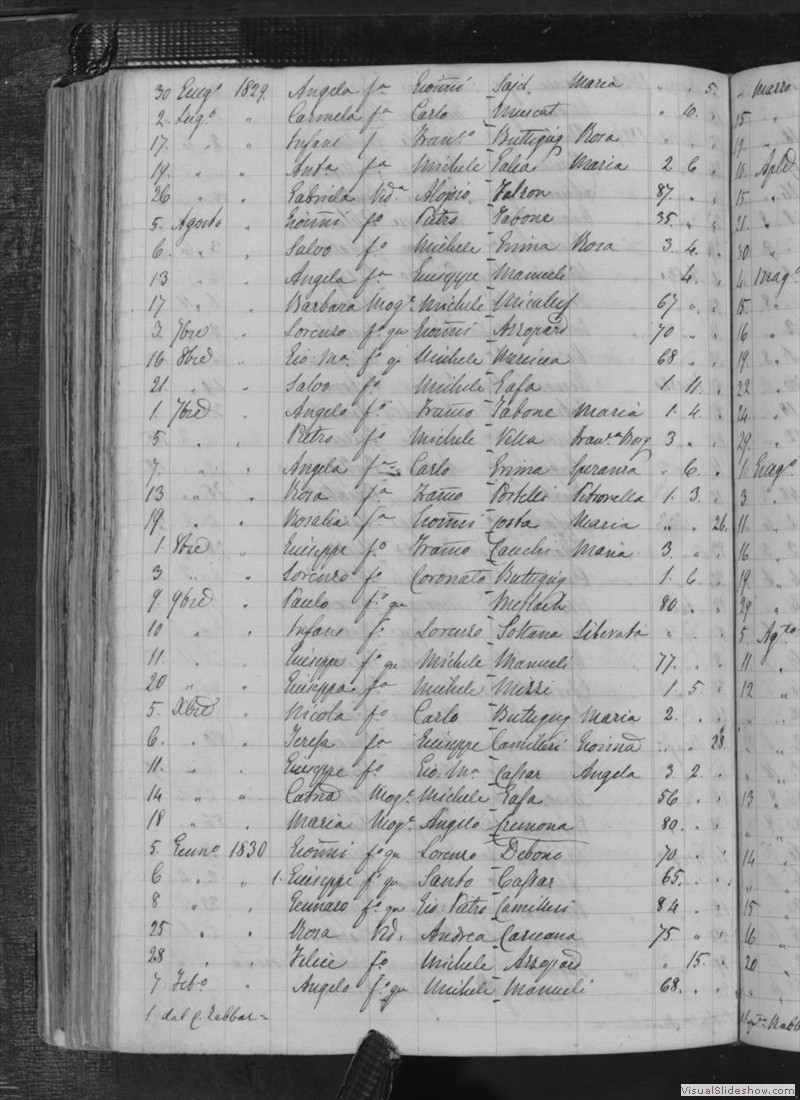 30 Giug.o 1829. Angela f.a Gioñi Said Maria " " 5.
2. Lug.o " Carmela f.a Carlo Muscat " 10. "
17. " " Infans f. Fran.co Buttigieg Rosa
19. " " Anta f.a Michele Galea Maria 2 6 "
26 " " Gabriela Vid.a Aloisio 87. " "
5. Agosto " Gioñi f.o Pietro Tabone 35. " "
6. " " Salvo f.o Michele Grima Rosa 3. 4. "
13 " " Angela f.a Giuseppe Mamueli " 4. "
17 " " Barbara Mog.e Michele Micalef 67 " "
3. 7bre " Lorenzo f.o qu Gioñi Azzopard 70 " "
16 8bre " Gio: M.a f.o q Michele 68 " "
21. " " Salvo f.o Michele Gafa 1. 11. "
1. 7bre " Angelo f.o Franco Tabone Maria 1. 4. "
5. " " Pietro f.o Michele Vella Fran.ca Borg 3 " "
7. " " Angela f.a Carlo Grima Speranza " 6. "
13 " " Rosa f.a Franco Portelli Petronella 1. 3. "
19. " " Rosalia f.a Gioñi Costa Maria " " 26.
1. 8bre " Giuseppe f.o Franco Cauchi Maria 3 " "
3 " " Lorenzo f.o Coronato Buttigieg 1. 6. "
9. 9bre " Paulo f.o qu 80 " "
10 " " Infans f. Lorenzo Soltana Liberata " " "
11. " " Giuseppe f.o qu Michele Mamueli 77. " "
20 " " Giuseppa f.a Michele Mizzi 1. 5. "
5. Xbre " Nicola f.o Carlo Buttigieg Maria 2. " "
6. " " Teresa f.a Giuseppe Camilleri " " 28.
11. " " Giuseppe f.o Gio. M.a Cassar Angela 3. 2. "
14 " " Catna Mog.e Michele Gafa 56 " "
18 " " Maria Mog.e Angelo Cremona 80. " "
5. Genn.o 1830 Gioñi f.o qu Lorenzo Debono 70 " "
6 " " 1. Giuseppe f.o qu Santo Cassar 65. " "
8 " " Gennaro f.o qu Gio: Pietro Camilleri 84 " "
25 " " Rosa Vid. Andrea Caruana 75 " "
28 " " Felice f.o Michele Azzopard " 15. "
7. Feb.o " Angelo f.o qu Michele Mamueli 68. " "
1. dal C. Zabbar =
Marzo
15
19
10. Aple
15
21.
30
4. Mag.o
15.
16
19.
22
24.
29.
1. Giug.o
3
11
16
19.
29
5. Ag.to
11.
12
13
14
15
16
20
VisualSlideshow.com